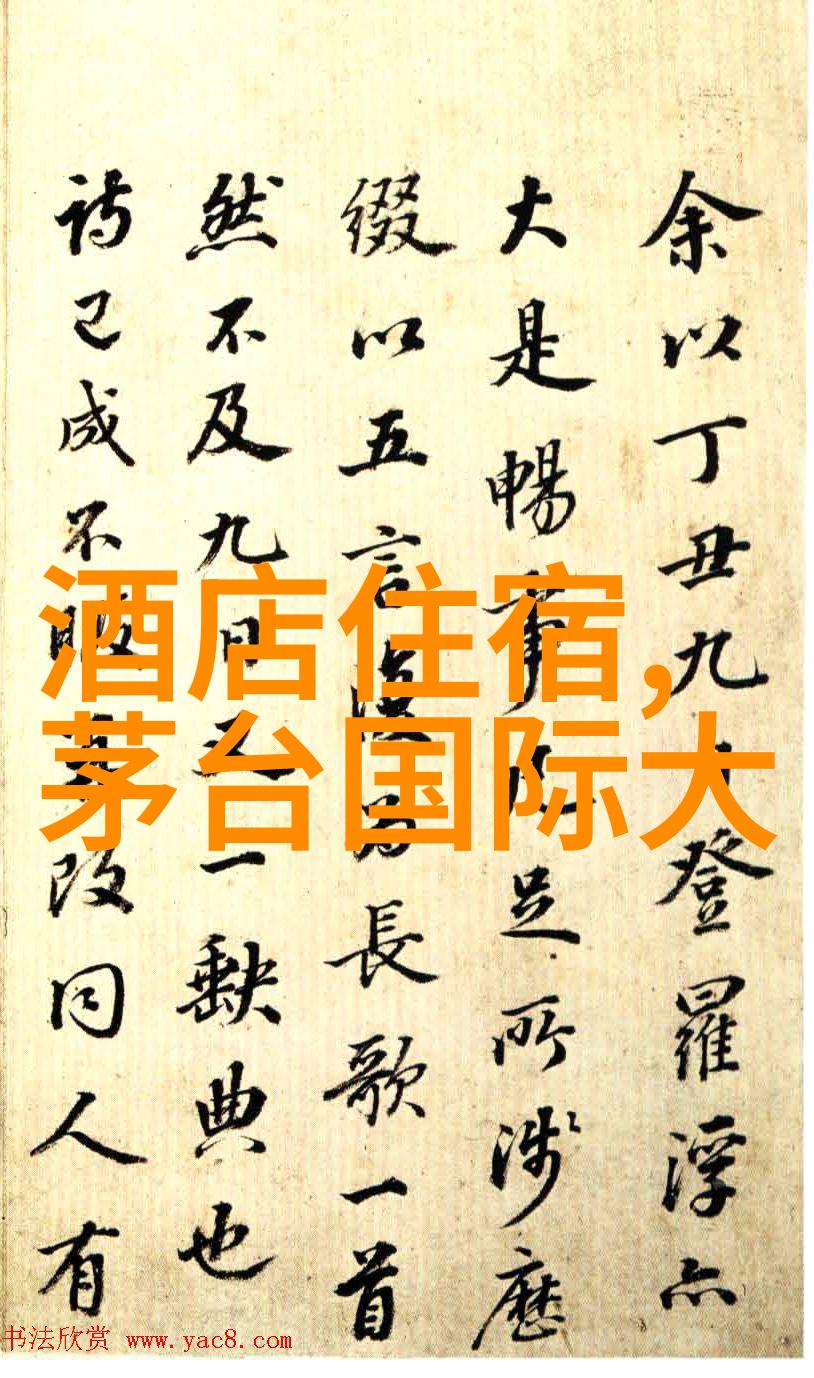 余以丁丑九登羅浮亦
大是暢事足所涉歷
綴以五言長歌一首
然不及九日一缺典也
詩已成不暇改同人有
酒店住宿,
茅台国际大
书法欣赏 www.yac8.com